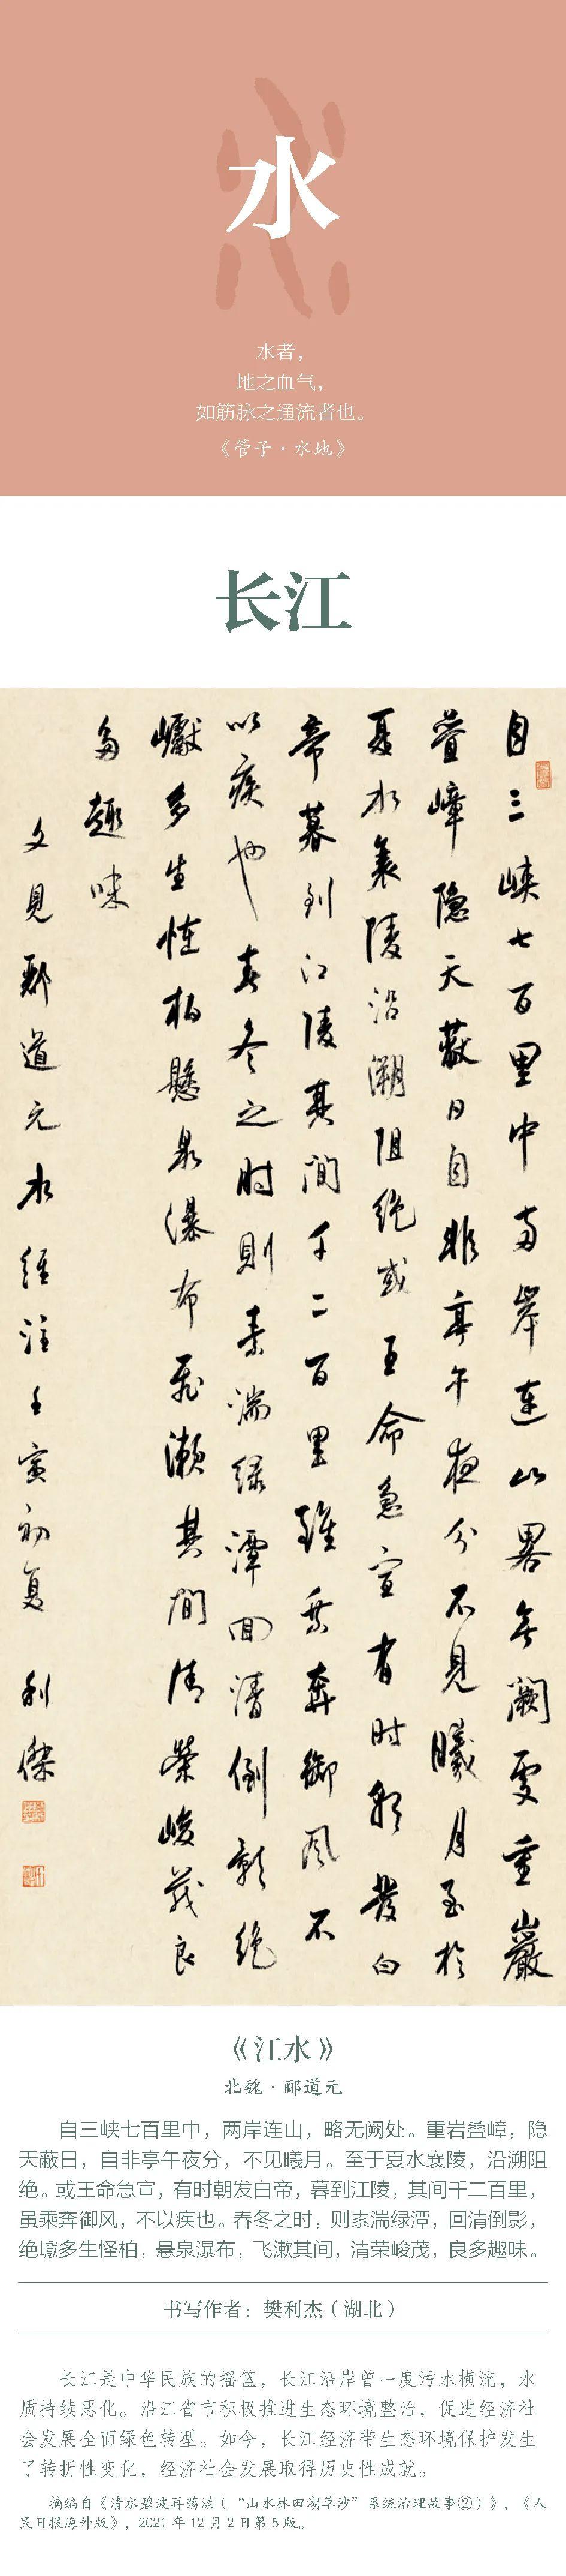 水
水者，
地之血气，
如筋脉之通流者也。
《管子·水地》
长江
自三峽七百里中兩岸連山畧無闕處重巖
疊嶂隐天蔽日自非亭午夜分不見曦月至於
夏水襄陵沿溯阻絶或王命急宣有时朝發白
帝暮到江陵其間千二百里雖乘奔御風不
以疾也春冬之时則素湍緑潭回清倒影絶
巘多生怪柏懸泉瀑布飛漱其間清榮峻茂良
多趣味
文見酈道元水經注壬寅初夏 利傑
《江水》
北魏·郦道元
自三峡七百里中，两岸连山，略无阙处。重岩叠嶂，隐
天蔽日，自非亭午夜分，不见曦月。至于夏水襄陵，沿溯阻
绝。或王命急宣，有时朝发白帝，暮到江陵，其间千二百里，
虽乘奔御风，不以疾也。春冬之时，则素湍绿潭，回清倒影，
绝巘多生怪柏，悬泉瀑布，飞漱其间，清荣峻茂，良多趣味。
书写作者：樊利杰（湖北）
长江是中华民族的摇篮，长江沿岸曾一度污水横流，水
质持续恶化。沿江省市积极推进生态环境整治，促进经济社
会发展全面绿色转型。如今，长江经济带生态环境保护发生
了转折性变化，经济社会发展取得历史性成就。
摘编自《清水碧波再荡漾（“山水林田湖草沙”系统治理故事②）》，《人
民日报海外版》，2021 年 12 月 2 日第 5 版。